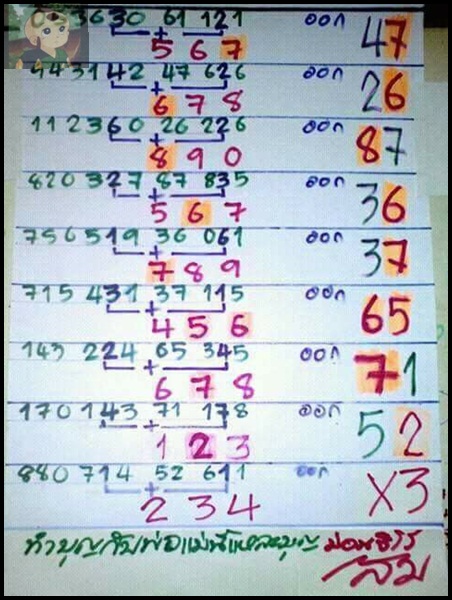 03630 61 121 ออก 47
5 6 7
943142 47 626 ออก 26
6 7 8
112360 26 226 ออก 87
8 9 0
820 327 87 835 ออก 36
5 6 7
756519 36 061 ออก 37
7 8 9
715 431 37 115 ออก 65
4 5 6
143 224 65 345 ออก 71
6 7 8
170 143 71 178 ออก 52
1 2 3
880 714 52 611 ออก X3
2 3 4
ทำบุญกับพ่อแม่นี่แหละบุญ